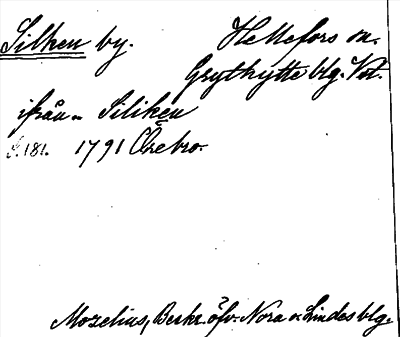 Silken by. Hellefors sn.
Grythytte blg. Vstm.
ifrån Siliken
S. 181. 1791 Örebro.
Mozelius, Beskr. öfv. Nora o. Lindes blg.